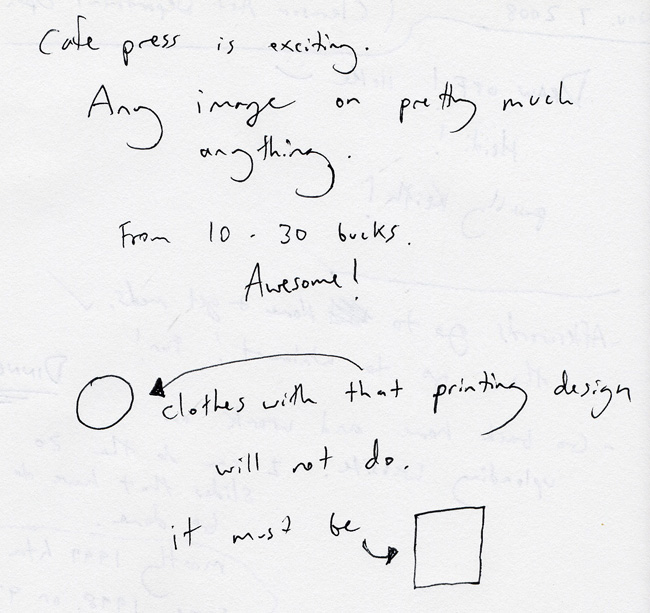 Cafe press is exciting.
Any image on pretty much
anything.
From 10 - 30 bucks.
Awesome!
clothes with that printing design
will not do.
it must be